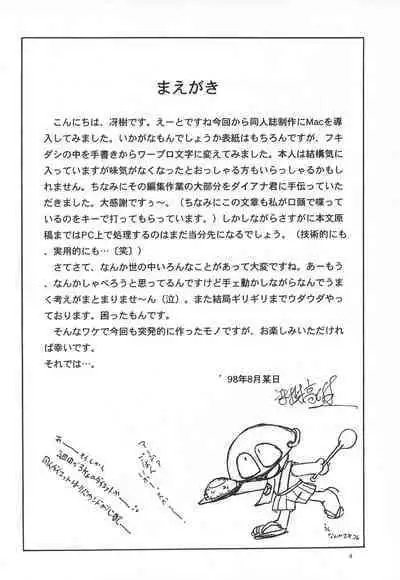 まえがき
こんにちは、冴樹です。えーとですね今回から同人誌制作にMacを導
入してみました。いかがなもんでしょうか表紙はもちろんですが、フキ
ダシの中を手書きからワープロ文字に変えてみました。本人は結構気に
入っていますが味気がなくなったとおっしゃる方もいらっしゃるかもし
れません。ちなみにその編集作業の大部分をダイアナ君に手伝っていた
だきました。大感謝ですぅ〜。(ちなみにこの文章も私が口頭で喋って
いるのをキーで打ってもらっています。)しかしながらさすがに本文原
稿まではPC上で処理するのはまだ当分先になるでしょう。(技術的にも
、実用的にも…〔笑〕)
さてさて、なんか世の中いろんなことがあって大変ですね。あーもう
、なんかしゃべろうと思ってるんですけど手ェ動かしながらなんでうま
く考えがまとまりませ〜ん(泣)。また結局ギリギリまでウダウダやっ
ております。困ったもんです。
そんなワケで今回も突発的に作ったモノですが、お楽しみいただけれ
ば幸いです。
それでは…。
'98年8月某日
4